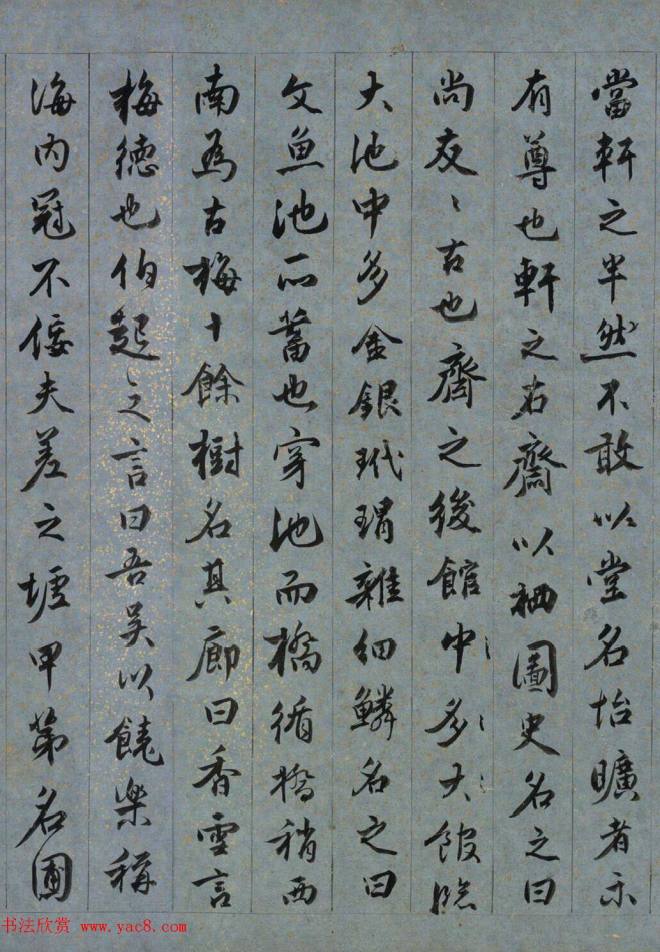 當軒之半然不敢以堂名怡曠者示
有尊也軒之右齋以栖圖史名之曰
尚友〻古也齋之後館中〻多〻大〻館臨
大池中多金銀玳瑁雜細鱗名之曰
文魚池所蓄也穿池而橋循橋稍西
南為古梅十餘樹名其廊曰香雪言
梅德也伯起之〻言曰吾吳以饒樂稱
海內冠不佞夫差之墟甲第名圃
书法欣赏 www.yac8.com